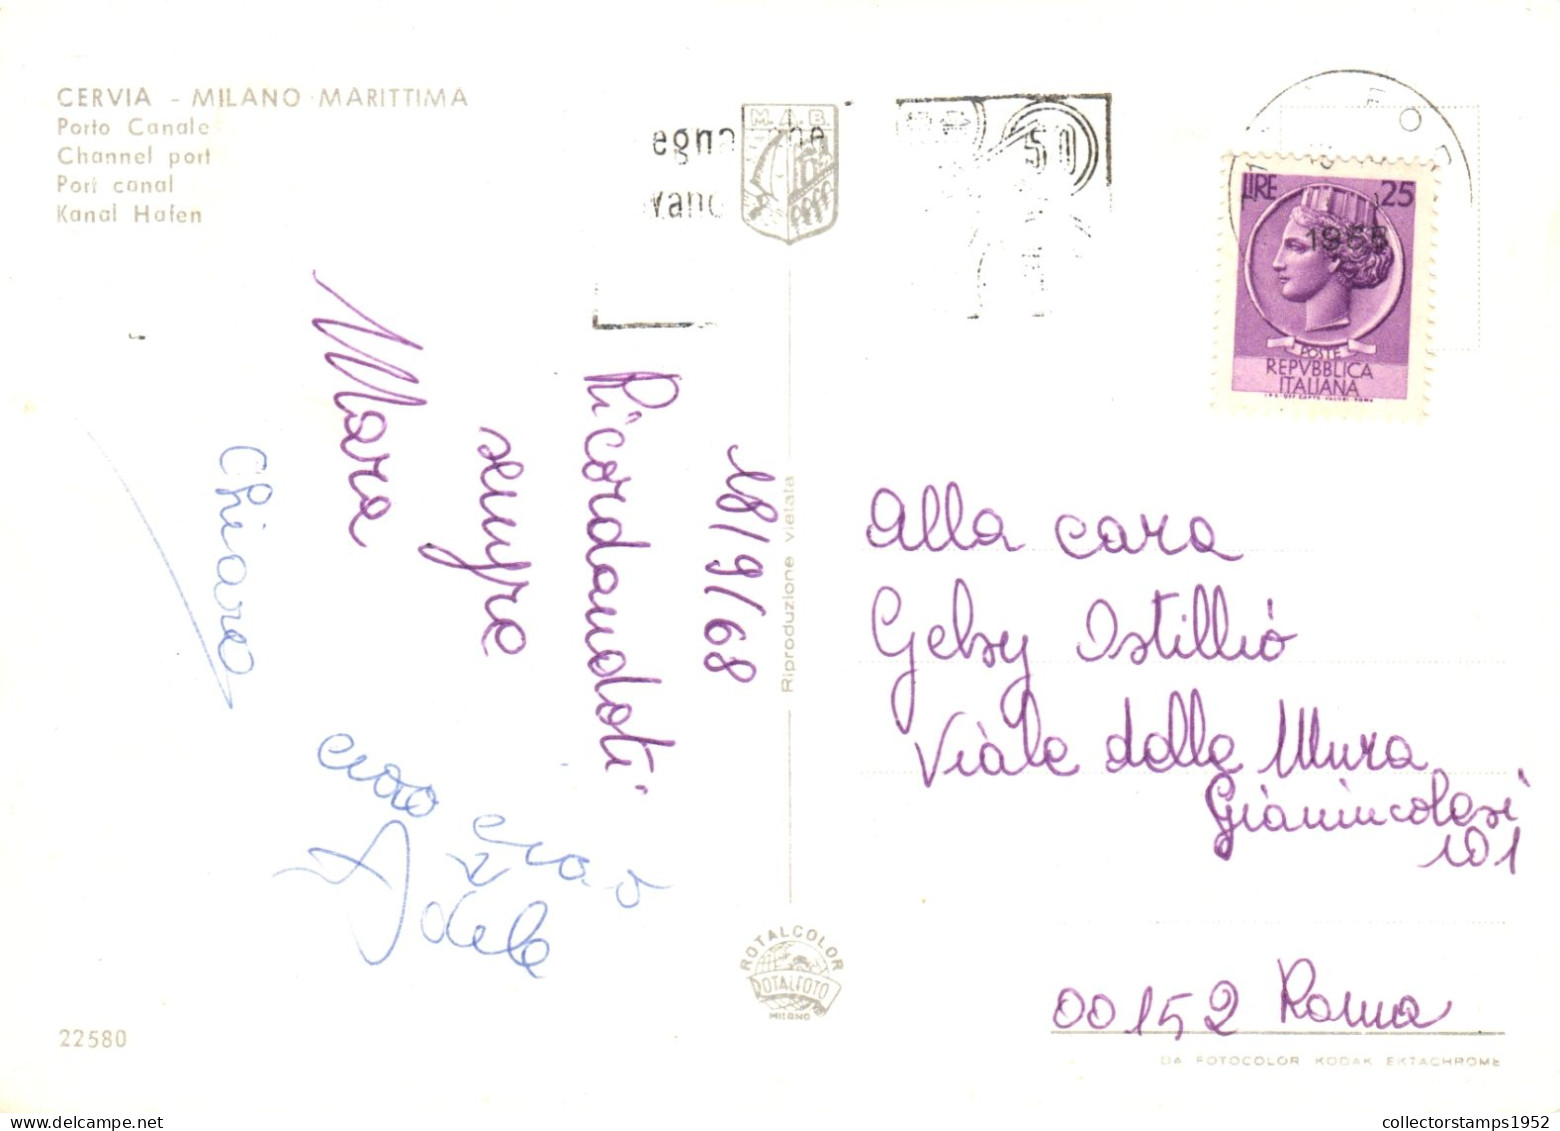 CERVIA - MILANO MARITTIMA
Porto Canale
Channel port
Port canal
Kanal Hafen
M. A. B.
50
LIRE 25
1968
POSTE
REPVBBLICA
ITALIANA
18/9/68
Ricordandoti
sempre
Mara
Chiara
ciao ciao
Adele
Riproduzione vietata
Alla cara
Gebsy Ostillio
Viale delle Mura
Gianincolesi
101
00152 Roma
ROTALCOLOR
ROTALFOTO
MILANO
22580
DA FOTOCOLOR KODAK EKTACHROME
collectorstamps1952